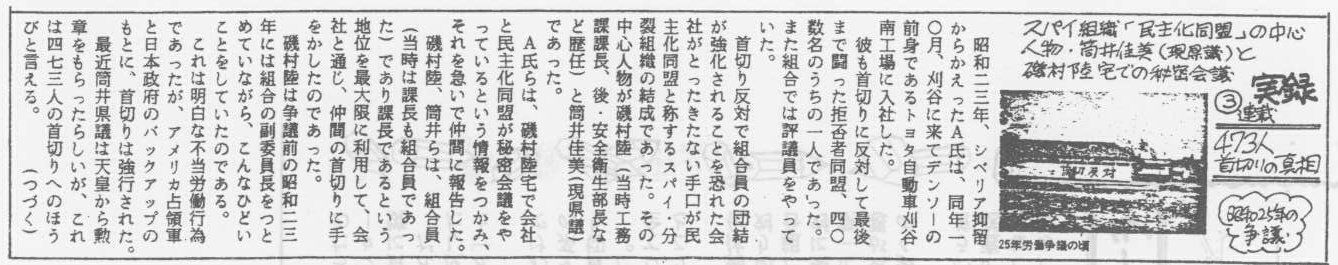 実録
③連載
473人
首切りの真相
昭和25年の
争議
スパイ組織「民主化同盟」の中心
人物・筒井佳美(現県議)と
磯村陸宅での秘密会議
首切反対
25年労働争議の頃
昭和二三年、シベリア抑留
からかえったA氏は、同年一
〇月、刈谷に来てデンソーの
前身であるトヨ自動車刈谷
南工場に入社した。
彼も首切りに反対して最後
まで闘った拒否者同盟、四〇
数名のうちの一人であった。
また組合では評議員をやって
いた。
首切り反対で組合員の団結
が強化されることを恐れた会
社がとったきたない手口が民
主化同盟と称するスパイ・分
裂組織の結成であった。その
中心人物が磯村陸(当時工務
課課長、後・安全衛生部長な
ど歴任)と筒井佳美(現県議)
であった。
A氏らは、磯村陸宅で会社
と民主化同盟が秘密会議をや
っているという情報をつかみ、
それを急いで仲間に報告した。
磯村陸、筒井らは、組合員
(当時は課長も組合員であっ
た)であり課長であるという
地位を最大限に利用して、会
社と通じ、仲間の首切りに手
をかしたのであった。
磯村陸は争議前の昭和二三
年には組合の副委員長をつと
めていながら、こんなひどい
ことをしていたのである。
これは明白な不当労働行為
であったが、アメリカ占領軍
と日本政府のバックアップの
もとに、首切りは強行された。
最近筒井県議は天皇から勲
章をもらったらしいが、これ
は四七三人の首切りへのほう
びと言える。 (つづく)